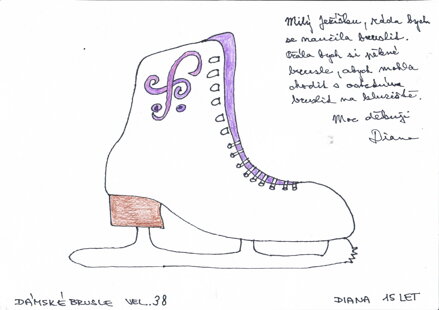 Milý Ježíšku, ráda bych
se naučila bruslit.
Přála bych si pěkné
brusle, abych mohla
chodit s
bruslit na kluziště.
Moc děkuji
Diana
DÁMSKÉ BRUSLE VEL. 38
DIANA 15 LET